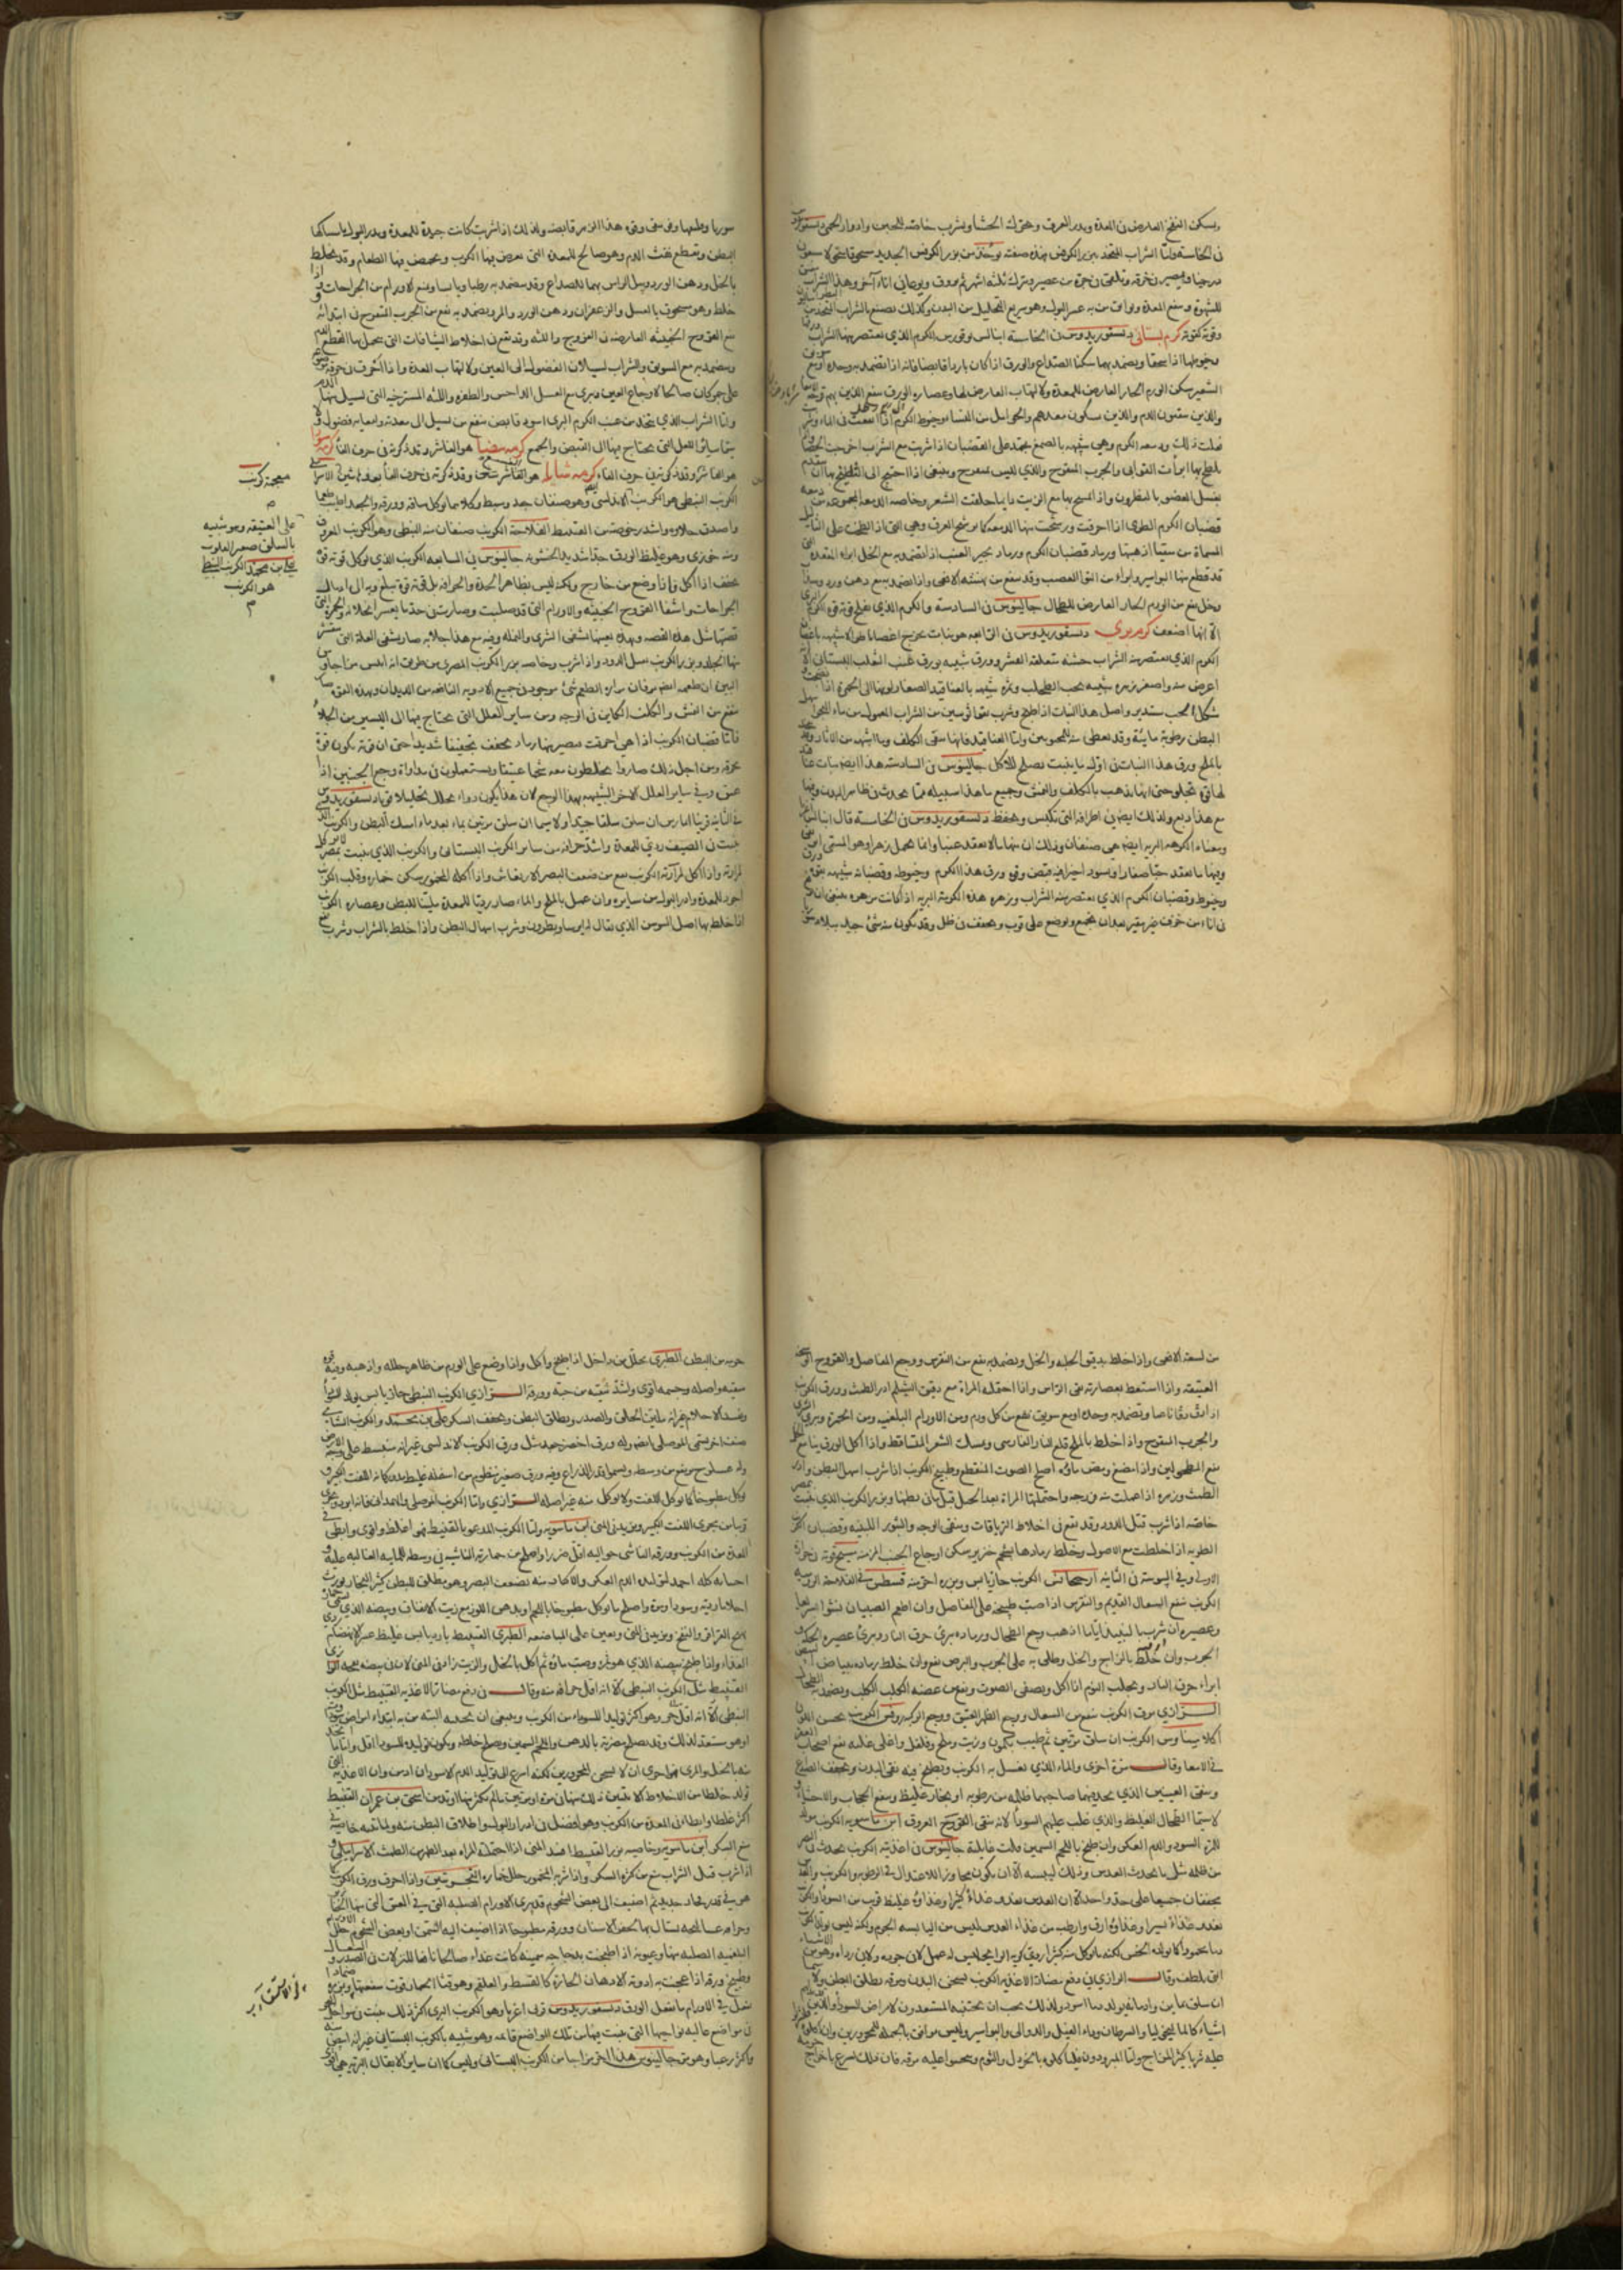 ويسكن النفخ العارض في المعدة ويدر العرق ويحرك الجشا ويشرب خاصة للجبن وادوار الحمى ديسقوريدوس
في الخامسة واما الشراب المتخذ ببزر الكرفس فهذه صفته يؤخذ من بزر الكرفس الحديد
ويصير في خرقة ويلقى في جرة من عصير ويترك ثلثة اشهر ثم يروق ويوعا في اناء آخر وهذا الشراب
للشهوة وينفع المعدة ويوافق من به عسر البول وهو سريع التحليل من البدن وكذلك يصنع بالشراب المتخذ من
وقوته كقوته كرم بستاني ديسقوريدوس في الخامسة ورق الكرم الذي يعتصر منها الشراب
وخيوطها اذا سحقا وتضمد بهما سكنا الصداع والورق اذا كان باردا قابضا فانه اذا تضمد به وحده او مع
الشعير سكن الورم الحار العارض للمعدة والالتهاب العارض لها وعصارة الورق تنفع الذين بهم قرحة
والذين يتقيون الدم والذين يشكون معدهم والحوامل من النساء وخيوط الكرم اذا انقعت في الماء وشربت
فعلت ذلك ودمعة الكرم وهي شبيهة بالصمغ تجمد على القضبان اذا شربت مع الشراب اخرجت الحصا
بلطخ بها ابرأت القوابي والجرب المتقرح والذي ليس بمتقرح وينبغي اذا احتيج الى التلطيخ بها ان يتقدم
بغسل العضو بالنطرون واذا تمسح بها مع الزيت دايما حلقت الشعر وخاصة الدمعة المجموعة من
قضبان الكرم الطري اذا احرقت ورشحت منها الدمعة كما يرشح العرق وهي التي اذا لطخت على الثآليل
المسماة اذهبتها ورماد قضبان الكرم ورماد ثجير العنب اذا تضمد به مع الخل ابرأ المقعدة التي
قد قطع منها البواسير وابرأ من التوا العصب وقد ينفع من نهشة الافعى واذا تضمد به مع دهن ورد وسذاب
وخل نفع من الورم الحار العارض للطحال جالينوس في السادسة والكرم الذي يفلح قوته قوة الكرم البري
الا انها اضعف كرم بري ديسقوريدوس في الرابعة هو نبات يخرج اغصانا طوالا شبيهة باغصان
الكرم الذي يعتصر منه الشراب خشنة متعلقة القشر وورق شبيه بورق عنب الثعلب البستاني الا
اعرض منه واصغر وزهره شبيه بحب الطحلب وثمره شبيهة بالعناقيد الصغار لونها الى الحمرة اذا نضجت
شكل الحب مستدير واصل هذا النبات اذا طبخ وشرب من الشراب المعمول من ماء البحر اسهل
البطن رطوبة مائية وقد يعطى منه المحبونين واما العناقيد فانها تنقي الكلف وما اشبهه من الاثار وقد
بالملح ورق هذا النبات في اول ما ينبت يصلح للاكل جالينوس في السادسة هذا ايضا نبات
لها قوة تجلو حتى انها تذهب بالكلف والنمش وجميع ما هذا سبيله مما يحدث في ظاهر البدن وفيها
مع هذا دبغ ولذلك ايضا في اطرافه التي تكبس وتحفظ ديسقوريدوس في الخامسة قال
ومعناه الكرمة البرية ايضا هي صنفان وذلك ان منها ما لا يعقد عنبا وانما يحمل زهرا وهو المسمى
ومنها ما يعقد حبا صغارا اسود اجزا فيه قبض وقوة ورق هذا الكرم وخيوطه وقضبانه شبيهة بقوة ورق
وخيوط وقضبان الكرم الذي يعتصر منه الشراب وزهرة هذه الكرمة البرية اذا كانت مزهرة ينبغي ان
في اناء من خزف غير مقير بعد ان يجمع ويوضع على ثوب ويجفف في ظل وقد يكون منه شيء جيد ببلاد
سوريا وقوة هذا الزهر قابضة ولذلك اذا شربت كانت جيدة للمعدة ويدر البول وامساك
البطن ويقطع نفث الدم وهو صالح للمعدة التي يعرض فيها الكرب ويحمض فيها الطعام وقد يخلط
بالخل ودهن الورد ويبل الراس بهما للصداع وقد يتضمد به رطبا ويابسا ويمنع الاورام من الجراحات
خلط وهو مسحوق بالعسل والزعفران ودهن الورد والمر وتضمد به نفع من الجرب المتقرح في ابتدائه
مع القروح الخبيثة العارضة في الفروج واللثة وقد يقع في اخلاط الشيافات التي يحمل بها لقطع الدم
ويتضمد به مع السويق والشراب لسيلان الفضول الى العين والالتهاب المعدة واذا احرق في خرقة
على جمر كان صالحا لاوجاع العين ويبري مع العسل الداحس والظفرة واللثة المسترخية التي يسيل منها الدم
واما الشراب الذي يتخذ من عنب الكرم البري اسود قابض ينفع من تسيل الى معدته وامعايه فضول
ساير العلل التي يحتاج فيها الى القبض والجمع كرمة بيضا هو الفاشرا وقد ذكرته في حرف الفا كرمة سودا
وقد ذكرته في حرف الفاء كرمة شايكة هو الفاشر شتين وقد ذكرته في حرف الفا
الكرنب النبطي هو الكرنب الاندلسي وهو صنفان جعد وسبط وكلاهما يوكل ساقه وورقه والجعد اطيب طعما
واصدق حلاوة واشد رخوصة من القنبيط الفلاحة الكرنب صنفان منه النبطي وهو الكرنب المعروف
ومنه خوزي وهو غليظ الورق جدا شديد الخشونة جالينوس في السابعة الكرنب الذي يوكل قوته قوة
تجفف اذا اكل واذا وضع من خارج ولكنه ليس بظاهر الحدة والحرافة بل قوته قوة يبلغ به الى ادمال
الجراحات واشفا القروح الخبيثة والاورام التي قد صلبت وصارت في حد ما يعسر انحلاله والحمرة التي
قصتها مثل هذه القصة وبهذه بعينها تشفى الشرى والنملة وفيه مع هذا جلا به صار يشفي العلة التي يتقشر
فيها الجلد وبزر الكرنب يقتل الدود واذا شرب وخاصة بزر الكرنب المصري من طريق انه ايبس
البين ان طعمه ايضا مر فان مرارة الطعم شيء موجود في جميع الادوية النافعة من الديدان وبهذه القوة صار
ينفع من النمش والكلف الكاين في الوجه ومن ساير العلل التي يحتاج فيها الى اليسير من الجلاء
فاما قضبان الكرنب اذا هي احرقت فيصير منها رماد يجفف تجفيفا شديدا حتى ان قوته تكون قوة
محرقة ومن اجل ذلك صاروا يخلطون معه شحما عتيقا ويستعملونه في مداواة وجع الجنبين اذا
عتق وفي ساير العلل الاخر الشبيهة بهذا الوجع لان هذا يكون دواء يحلل تحليلا قويا ديسقوريدوس
في الثانية قرنبا امارس ان سلق سلقا جيدا ولا سيما ان سلق مرتين بماء بعد ماء امسك البطن والكرنب الذي
ينبت في الصيف ردي للمعدة واشد حرافة من ساير الكرنب البستاني والكرنب الذي ينبت بمصر لا يوكل
لمرارته واذا اكل الكرنب نفع من ضعف البصر والارتعاش واذا اكله المخمور سكن خماره وقلب الكرنب
اجود للمعدة وادر للبول من سايره وان عمل بالملح والماء صار رديا للمعدة ملينا للبطن وعصارة الكرنب
اذا خلط بها اصل السوسن الذي يقال له ايرسا ونطرون وشرب اسهال البطن واذا خلط بالشراب وشرب نفع
صمغة كرنب
على العتيقة وهو شبيه
بالسلق صغير القلوب
علي بن محمد الكرنب النبطي
هو الكرنب
م
من لسعة الافعى واذا خلط بدقيق الحلبة والخل وتضمد به نفع من النقرس ووجع المفاصل والقروح الوسخة
العتيقة واذا استعط بعصارته نقى الراس واذا احتملته المراة مع دقيق الشيلم ادر الطمث وورق الكرنب
اذا دق دقا ناعما وتضمد به وحده او مع سويق نفع من كل ورم ومن الاورام البلغمية ومن الحمرة ويبري الشرى
والجرب المتقرح واذا خلط بالملح قلع النار الفارسي ويمسك الشعر المتساقط واذا اكل الورق نيا مع الخل
نفع المطحولين واذا مضغ ومص ماؤه اصلح الصوت المنقطع وطبيخ الكرنب اذا شرب اسهل البطن وادر
الطمث وزهره اذا عملت منه فرزجة واحتملتها المراة بعد الحبل قتل ما في بطنها وبزر الكرنب الذي ينبت بمصر
خاصة اذا شرب قتل الدود وقد يقع في اخلاط الترياقات وينقي الوجه والبثور اللبنية وقضبان الكرنب
الطرية اذا احرقت مع الاصول وخلط رمادها بشحم خنزير سكن اوجاع الجنب المزمنة مسيح قوته حرارة
الاولى وفي اليبوسة في الثانية ارجحانس الكرنب حار يابس وبزره احر منه قسطس في الفلاحة الرومية
الكرنب ينفع السعال القديم والنقرس اذا صب طبيخه على المفاصل وان اطعم الصبيان نشوا سريعا
وعصيره ان شرب بالنبيذ اياما اذهب وجع الطحال ورماده يبري حرق النار ويبري عصيره الحكة و
الجرب وان خلط بالزاج والخل وطلي به على الجرب والبرص نفع وان خلط رماده ببياض البيض
ابراء حرق النار ويجلب النوم اذا اكل ويصفي الصوت وينفع من عضة الكلب الكلب ويضمد به الطحال
الرازي مرق الكرنب ينفع من السعال ووجع الظهر العتيق ووجع الركبة روفس الكرنب يحسن اللون
اكلا سياوس الكرنب ان سلق مرتين ثم طيب بكمون وزيت وملح وفلفل واغلى غليه نفع اصحاب
في الامعا وقال مرة اخرى والماء الذي يغسل به الكرنب ويطبخ فيه نقى البدن ويجفف الصداع
ويشفي العينين الذي يجد بهما صاحبهما ظلمة من رطوبة او بخار غليظ وينفع الحجاب والاحشاء و
لا سيما الطحال الغليظ والذي غلب عليهم السوداء لانه ينقي العروق ابن ماسويه الكرنب مولد
للمرة السودا والدم العكر وان طبخ باللحم السمين قلت غايلته جالينوس في اغذيته الكرنب يحدث في البصر
من ظلمة مثل ما يحدث العدس وذلك ليبسه الا ان يكون مجاوزا للاعتدال في الرطوبة والكرنب والعدس
يجففان جميعا على حد واحد الا ان العدس يغذو غذاء كثيرا وغذاؤه غليظ قريب من السودا والكرنب
يغذو غذاء يسيرا وغذاؤه ارق وارطب من غذاء العدس
دما محمودا كما يولده الخس لكنه ما يوكل منه كثيرا ردي كريه الرائحة ليس له عمل لا في جودة ولا في رداءة وهو من الاشياء
التي تلطف وقال الرازي في دفع مضار الاغذية الكرنب يسخن البدن ومرقه يطلق البطن ولا سيما
ان سلق بماءين وادمانه يولد دما اسود ولذلك يجب ان يجتنبه المستعدون لامراض السودا والذين بهم
اشياء كالماليخوليا والسرطان وداء الفيل والدوالي والبواسير وليس موافق بالجملة للمحرورين وان اكلوه
عليه شربا كثير المزاج واما المبرودون فلياكلوه بالخردل والثوم ويحسوا عليه مرقه فان ذلك اسرع باخراج
جرمه من البطن الطبري يحلل من داخل اذا طبخ واكل واذا وضع على الورم من ظاهر حلله واذهبه وفيه قوة
منقية واصله وجسمه اقوى واشد تنقية من حبه وورقه الرازي الكرنب النبطي حار يابس يولد السودا
ويفسد الاحلام غير انه يلين الحلق والصدر ويطلق البطن ويخفف السكر علي بن محمد والكرنب الشامي
صنف اخر يسمى الموصلي ايضا وله ورق اخضر جعد مثل ورق الكرنب الاندلسي غير انه ينبسط على وجه الارض
وله عسلوج يرتفع من وسطه ويسمو قدر الذراع وفيه ورق صغير منظوم من اسفله غليظ مدور كانه اللفت الكبير
يوكل مطبوخا كما يوكل اللفت ولا يوكل منه غير اصله الرازي واما الكرنب الموصلي والهمداني فانه ابرد ويجري
قريبا من مجرى اللفت الكبير ويزيد في المني ابن ماسويه واما الكرنب المدعو بالقنبيط فهو اغلظ واقوى وابطى في
المعدة من الكرنب وورقه الناشي حواليه اقل ضررا واصلح من جمارته الناشية في وسطه للمايية الغالبة عليه و
اجتنابه كله احمد لتوليده الدم العكر والاكثار منه يضعف البصر وهو يطلق للبطن كثير البخار يورث
احلاما ردية وسوداوية واصلح ما يوكل مطبوخا باللحم او بدهن اللوز مع زيت الانفاق وبيضه الذي يسمى جماره ردي
يولد القراقر والنفخ ويزيد في المني ويعين على الباضعة الطبري القنبيط بارد يابس غليظ عسر الانهضام ردي
الغذاء واذا طبخ بيضه الذي هو ثمره وصب ماؤه ثم اكل بالخل والزيت زاد في المني لان في بيضه نفخة الرازي
القنبيط مثل الكرنب النبطي الا انه اقل حرافة منه وقال في دفع مضار الاغذية القنبيط مثل الكرنب
النبطي الا انه اقل حرا وهو اكثر توليدا للسوداء من الكرنب وينبغي ان يجتنبه البتة من به ابتداء امراض سوداوية
او هو مستعد لذلك وقد يصلح مضرته بالدهن واللحم السمين ويصلح خلطه ويكون توليده للسودا اقل واما ما يتخذ
منه بالخل والمري فهو احرى ان لا يسخن المحرورين لكنه اسرع الى توليد الدم الاسود ان ادمن وان الاغذية التي
تولد خلطا من الاخلاط الا يتبين ذلك منها في مرة او مرتين ما لم يكثر منها او يدمن اسحق بن عمران القنبيط
اكثر غلظا وابطا في المعدة من الكرنب وهو افضل في ادرار البول واطلاق البطن منه ولمائه خاصية في
منع السكر ابن ماسويه وخاصية بزر القنبيط افساد المني اذا احتملته المراة بعد الطهر من الطمث الاسرائيلي و
اذا شرب قبل الشراب منع من كثرة السكر واذا شربه المخمور حلل خماره التجربتين واذا احرق ورق الكرنب كما
هو في قدر فخار جديد ثم اضيف الى بعض الشحوم فجر الاورام الصلبة التي في العنق التي منها الخنازير
وجرادة عساليجه يستاك بها تجفف الاسنان وورقه مطبوخا اذا اضيف اليه السمن او بعض الشحوم حلل الاورام
البلغمية الصلبة منها وعيونه اذا طبخت بدجاجة سمينة كانت غذاء صالحا نافعا للنزلات في الصدر والسعال
وطبيخ ورقه اذا عجنت به ادوية الادهان الحارة كالقسط والعلقم وهو قثاء الحمار قوت منفعتها وبزره
يفعل في الاورام ما يفعل الورق ديسقوريدوس قرنبي اغريا وهو الكرنب البري اكثر ذلك ينبت في سواحل البحر
في مواضع عالية نواحيها التي ينبت فيها من تلك المواضع قايمة وهو شبيه بالكرنب البستاني غير انه ابيض منه
واكثر زغبا وهو مر جالينوس هذا احر مزاجا من الكرنب البستاني وليس كما ان ساير الانقال البرية هي اقوى